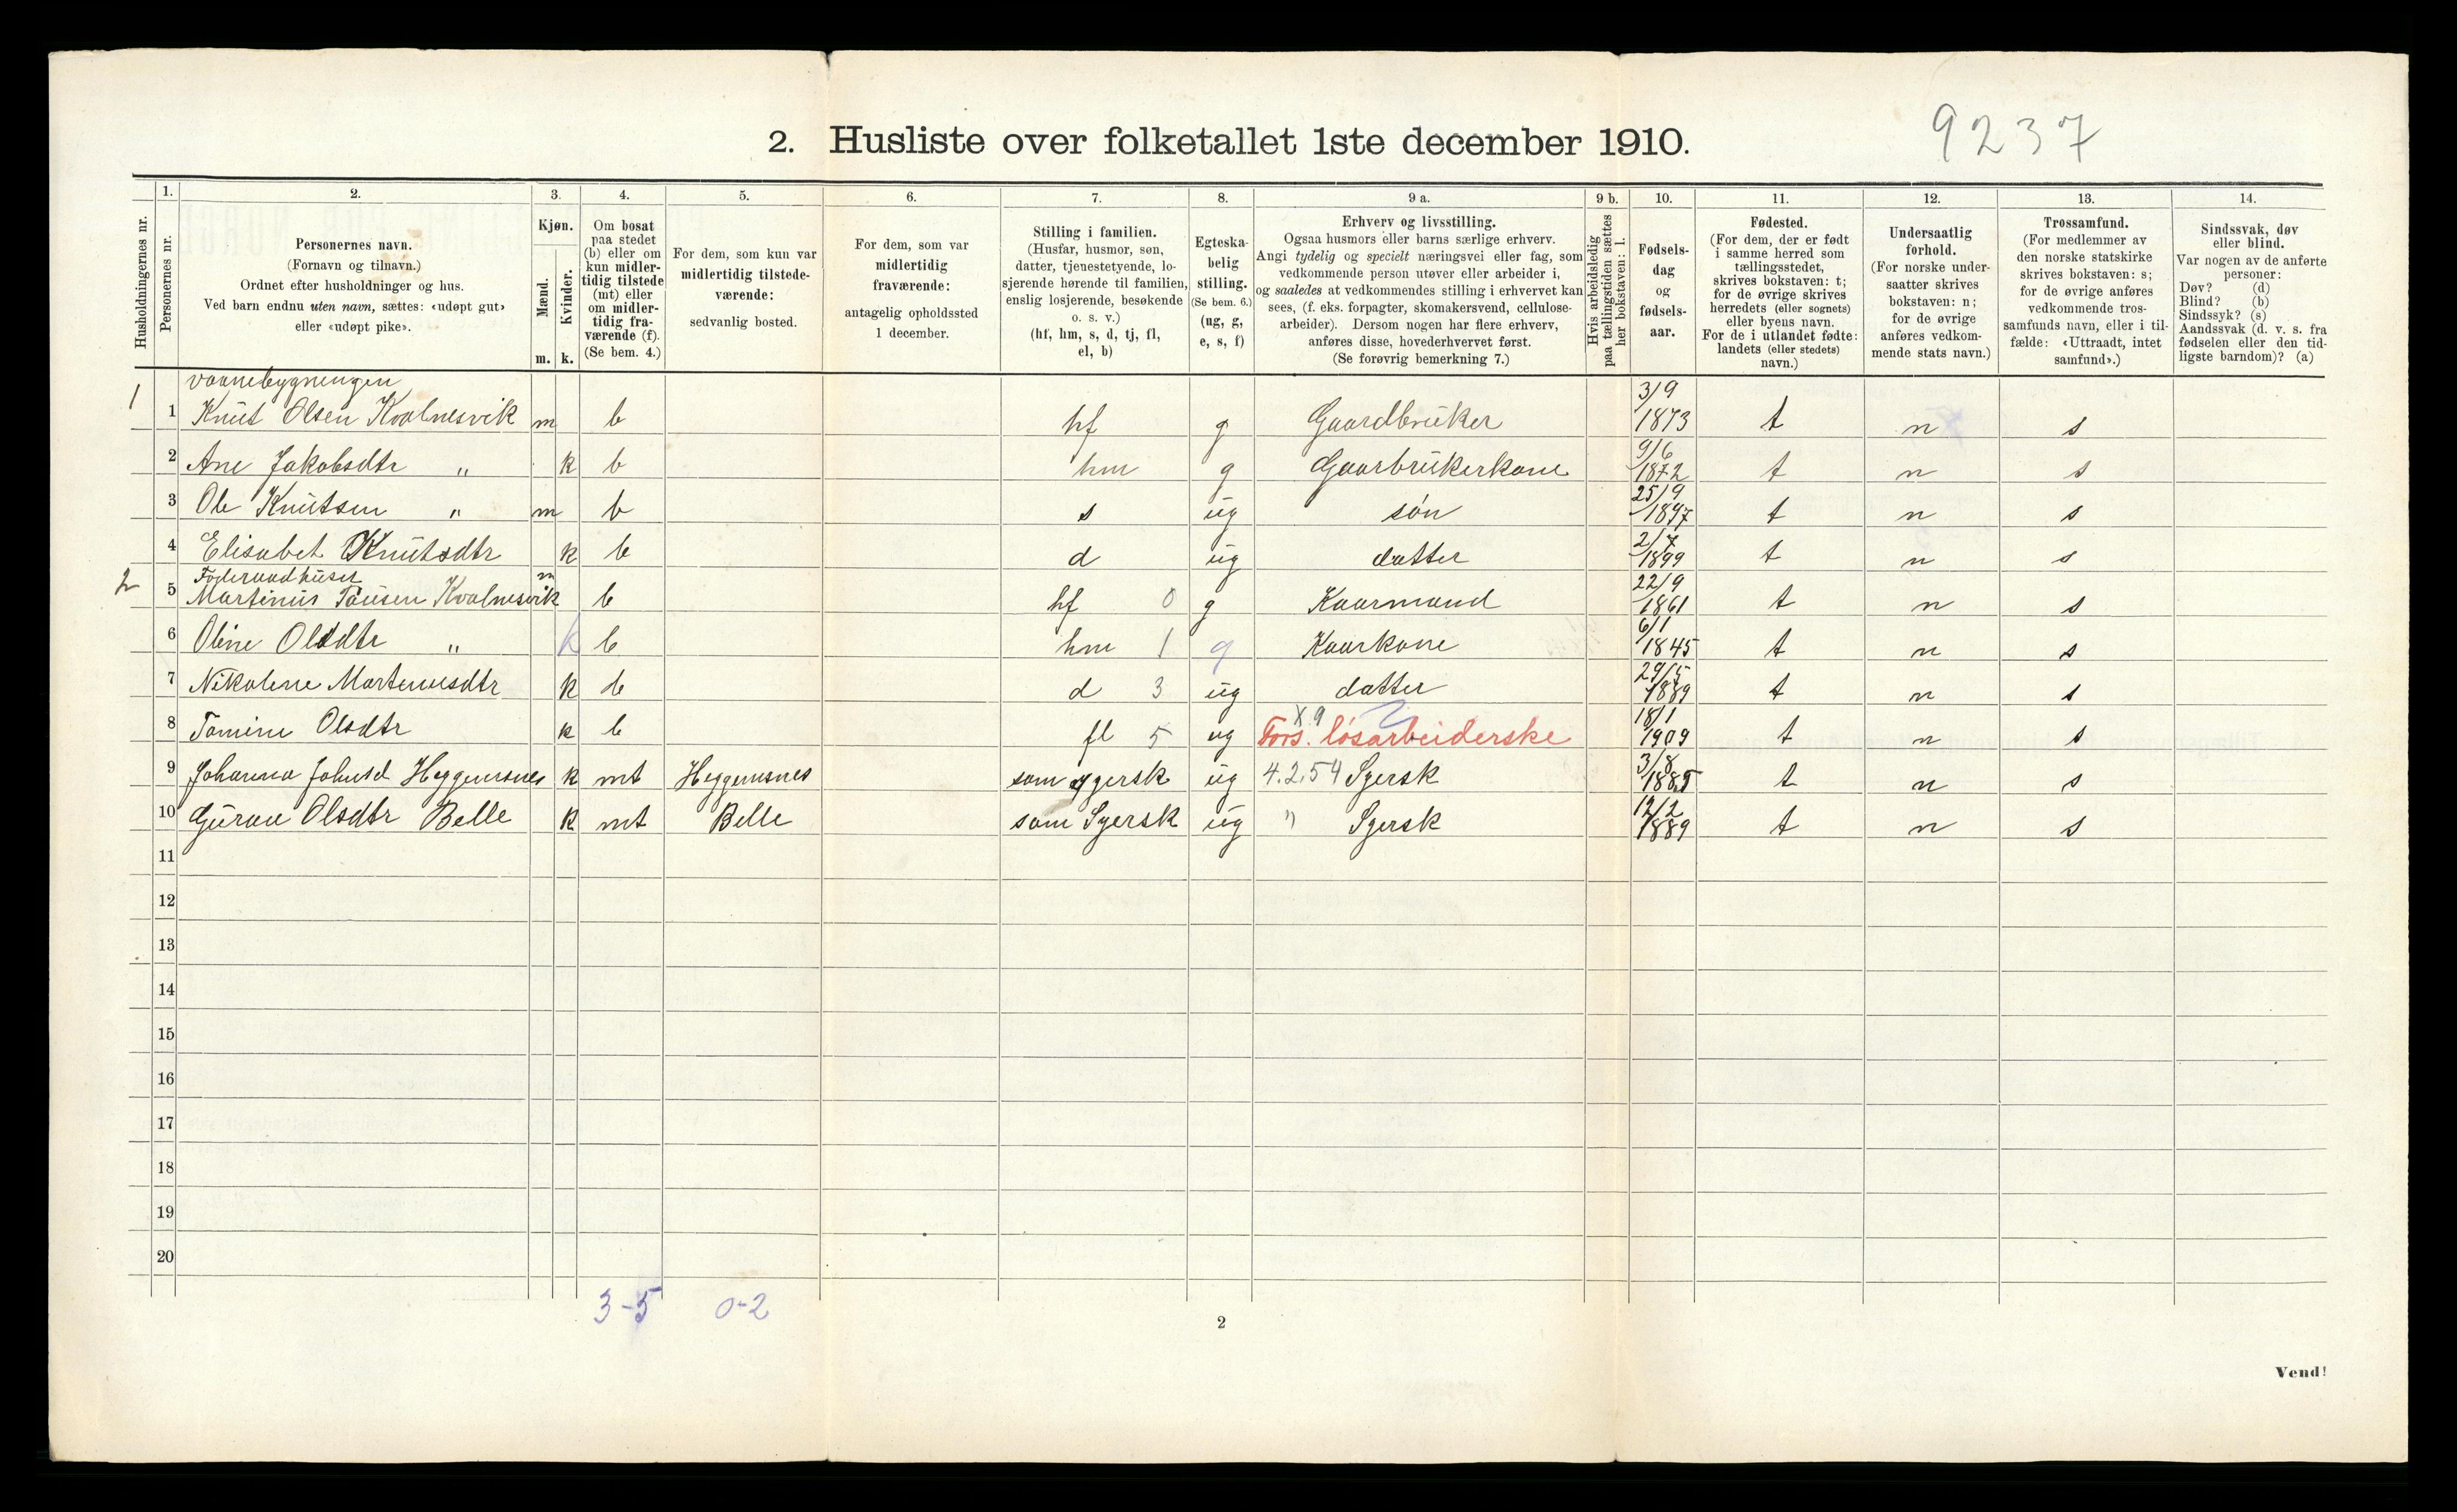 9237
2. Husliste over folketallet 1ste december 1910.
1. 2. 3. 4. 5. 6. 7. 8. 9 a. 9 b. 10. 11. 12. 13. 14.
Husholdningernes nr.
Personernes nr.
Personernes navn.
(Fornavn og tilnavn.)
Ordnet efter husholdninger og hus.
Ved barn endnu uten navn, sættes: «udøpt gut»
eller «udøpt pike».
Kjøn.
Mænd.
Kvinder.
m. k.
Om bosat
paa stedet
(b) eller om
kun midler-
tidig tilstede
(mt) eller
om midler-
tidig fra-
værende (f).
(Se bem. 4.)
For dem, som kun var
midlertidig tilstede-
værende:
sedvanlig bosted.
For dem, som var
midlertidig
fraværende:
antagelig opholdssted
1 december.
Stilling i familien.
(Husfar, husmor, søn,
datter, tjenestetyende, lo-
sjerende hørende til familien,
enslig losjerende, besøkende
o. s. v.)
(hf, hm, s, d, tj, fl,
el, b)
Egteska-
belig
stilling.
(Se bem. 6.)
(ug, g,
e, s, f)
Erhverv og livsstilling.
Ogsaa husmors eller barns særlige erhverv.
Angi tydelig og specielt næringsvei eller fag, som
vedkommende person utøver eller arbeider i,
og saaledes at vedkommendes stilling i erhvervet kan
sees, (f. eks. forpagter, skomakersvend, cellulose-
arbeider). Dersom nogen har flere erhverv,
anføres disse, hovederhvervet først.
(Se forøvrig bemerkning 7.)
Hvis arbeidsledig
paa tællingstiden sættes
her bokstaven: l.
Fødsels-
dag
og
fødsels-
aar.
Fødested.
(For dem, der er født
i samme herred som
tællingsstedet,
skrives bokstaven: t;
for de øvrige skrives
herredets (eller sognets)
eller byens navn.
For de i utlandet fødte:
landets (eller stedets)
navn.)
Undersaatlig
forhold.
(For norske under-
saatter skrives
bokstaven: n;
for de øvrige
anføres vedkom-
mende stats navn.)
Trossamfund.
(For medlemmer av
den norske statskirke
skrives bokstaven: s;
for de øvrige anføres
vedkommende tros-
samfunds navn, eller i til-
fælde: «Uttraadt, intet
samfund».)
Sindssvak, døv
eller blind.
Var nogen av de anførte
personer:
Døv? (d)
Blind? (b)
Sindssyk? (s)
Aandssvak (d. v. s. fra
fødselen eller den tid-
ligste barndom)? (a)
vaanebygningen
1 1 Knut Olsen Kvalnesvik m b hf g Gaardbruker 3/9 1873 t n s
2 Ane Jakobsdtr " k b hm g Gaarbrukerkone 9/6 1872 t n s
3 Ole Knutsen " m b s ug søn 25/9 1897 t n s
4 Elisabet Knutsdtr k b d ug datter 2/7 1899 t n s
Foderaadhuset
2 5 Martinus Kvalnesvik m b hf 0 g Kaarmand 22/9 1861 t n s
6 Oline Olsdtr " k b hm 1 g Kaarkone 6/1 1845 t n s
7 Nikoline Martinusdtr k b d 3 ug datter 29/5 1889 t n s
8 Tomine Olsdtr k b fl 5 ug Fors. løsarbeiderske X 9 18/1 1909 t n s
9 Johanna Johnsd Heggemsnes k mt Heggemsnes som Syersk ug 4.2.54 Syersk 3/8 1885 t n s
10 Guroe Olsdtr Belle k mt Belle som Syersk ug " Syersk 12/2 1889 t n s
11
12
13
14
15
16
17
18
19
20
3-5 0-2
2
Vend!